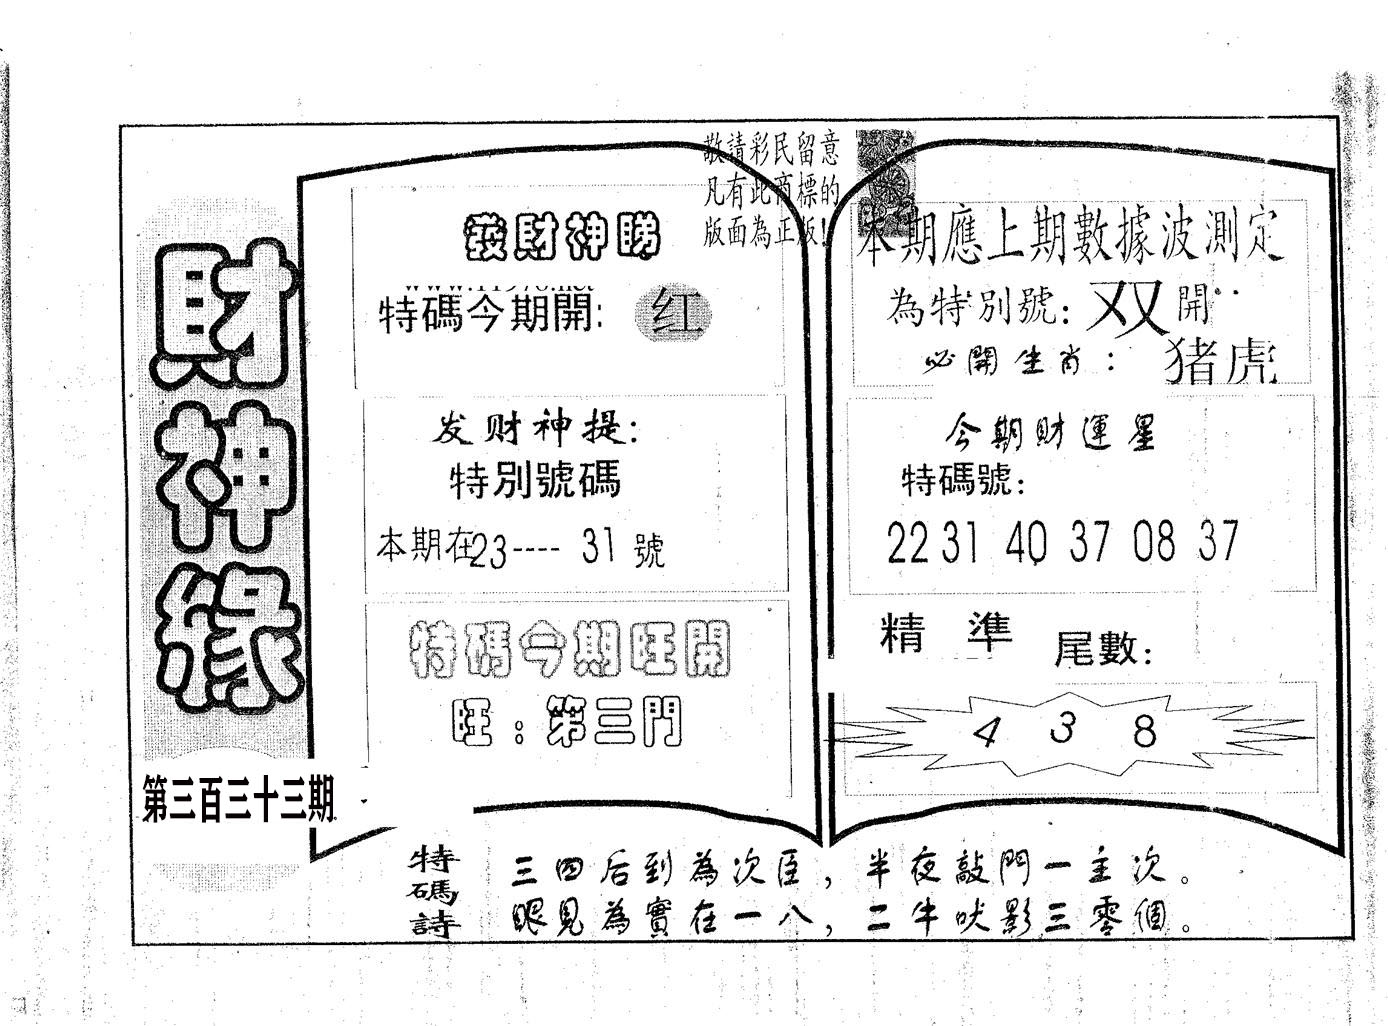 財神緣
第三百三十三期
敬請彩民留意
凡有此商標的
版面為正版!
發財神睇
特碼今期開: 红
发财神提:
特別號碼
本期在23---- 31 號
特碼今期旺開
旺:第三門
本期應上期數據波測定
為特別號: 双 開
必開生肖: 猪虎
今期財運星
特碼號:
22 31 40 37 08 37
精 準 尾數:
4 3 8
特碼詩
三四后到為次臣,半夜敲門一主次。
眼見為實在一八,二牛吠影三零個。